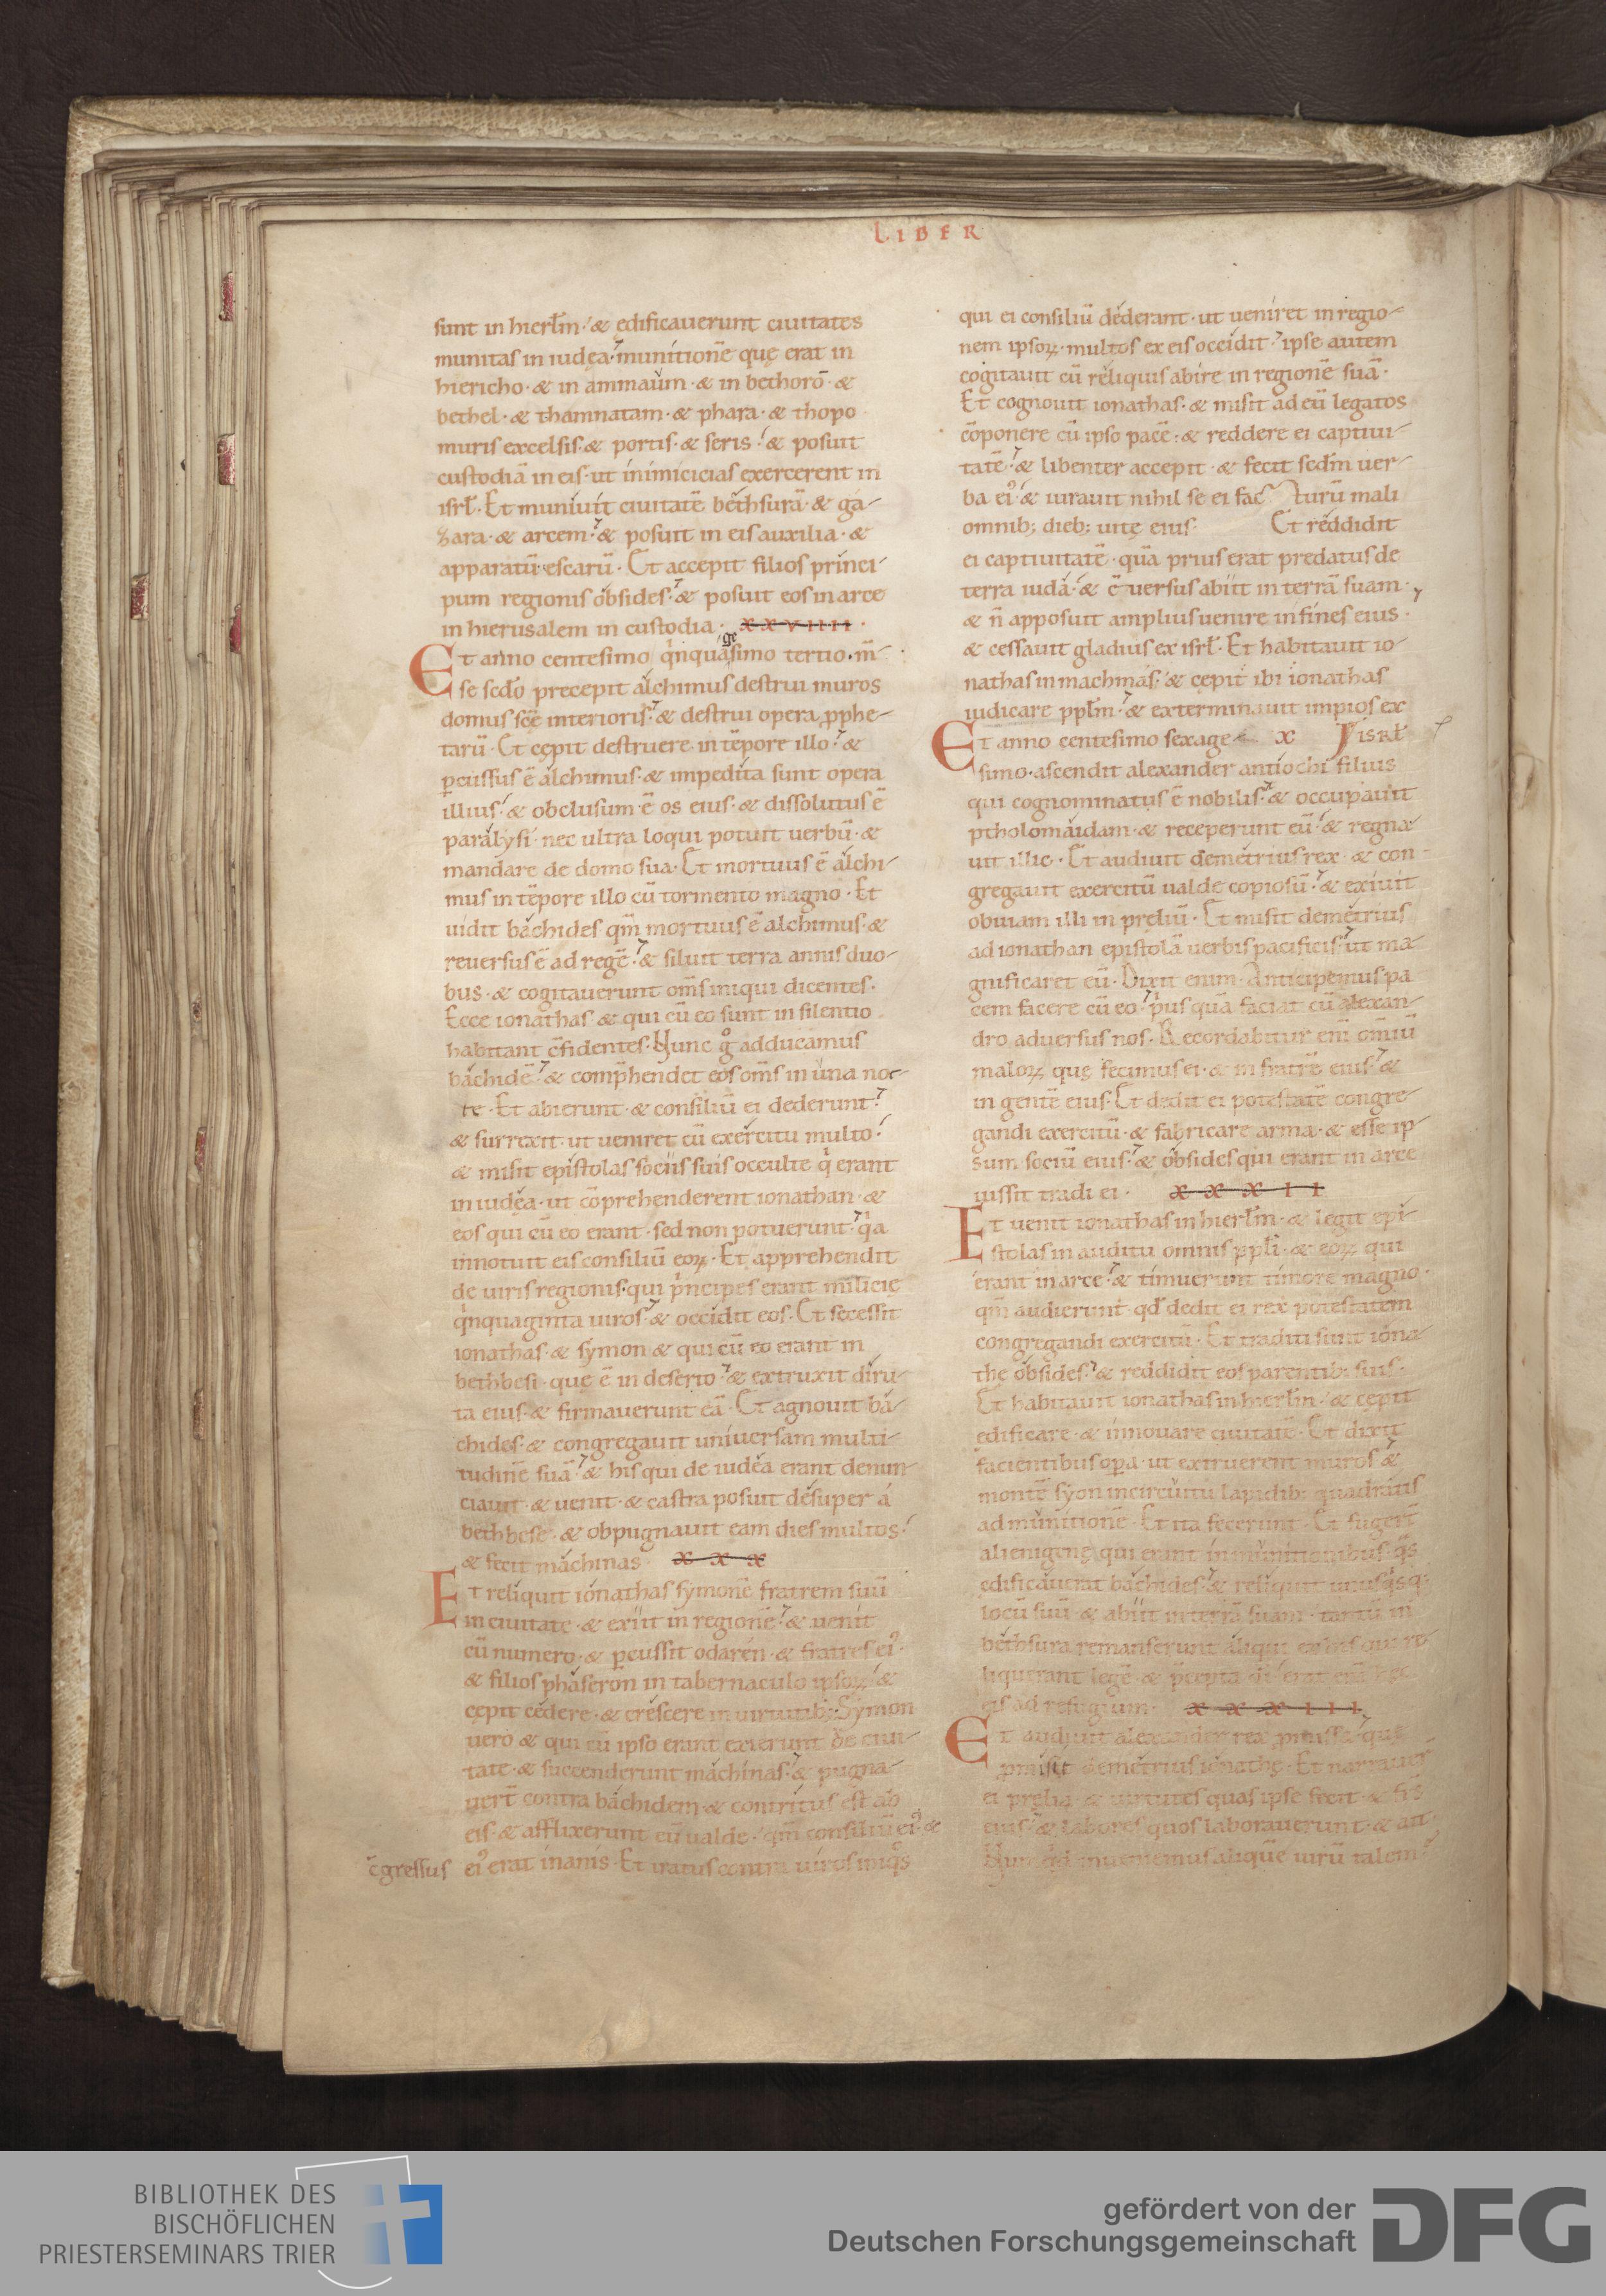 LIBER
sunt in hierl̄m· & ędificauerunt ciuitates
munitas in iudęa· munitionē quę erat in
hiericho· & in ammaum· & in bethorō· &
bethel· & thamnatam· & phara· & thopo
muris excelsis· & portis· & seris· & posuit
custodiā in eis· ut inimicicias exercerent in
isrl̄· Et muniuit ciuitatē bethsurā· & ga-
zara· & arcem· & posuit in eis auxilia· &
apparatū· escarū· Et accepit filios princi-
pum regionis obsides· & posuit eos in arce
in hierusalem in custodia· xxviiii·
Et anno centesimo qͥnquagesimo tertio· m̄-
se scd̄o precepit alchimus destrui muros
domus scē interioris· & destrui opera ꝓphe-
tarū· Et cępit destruere· in tēpore illo· &
ꝑcussus ē alchimus· & impedita sunt opera
illius· & obclusum ē os eius· & dissolutus ē
paralysi· nec ultra loqui potuit uerbū· &
mandare de domo sua· Et mortuus ē alchi-
mus in tēpore illo cū tormento magno· Et
uidit bachides qm̄ mortuus ē alchimus· &
reuersus ē ad regē· & siluit terra annis duo-
bus· & cogitauerunt om̄s iniqui dicentes·
Ecce ionathas· & qui cū eo sunt in silentio
habitant c̄fidentes· Nunc gͦ adducamus
bachidē· & comp̄hendet eos om̄s in una noc-
te· Et abierunt· & consiliū ei dederunt·
& surrexit· ut ueniret cū exercitu multo·
& misit epistolas sociis suis occulte qͥ erant
in iudęa· ut cōprehenderent ionathan· &
eos qui cū eo erant· sed non potuerunt· qͥa
innotuit eis consiliū eoꝝ· Et apprehendit
de uiris regionis· qui pͥncipes erant militię
qͥnquaginta uiros· & occidit eos· Et secessit
ionathas· & symon & qui cū eo erant in
bethbesi· quę ē in deserto· & extruxit diru-
ta eius· & firmauerunt eā· Et agnouit ba-
chides· & congregauit uniuersam multi-
tudinē suā· & his qui de iudea erant denun-
ciauit· & uenit· & castra posuit desuper a
bethbese· & obpugnauit eam dies multos·
& fecit machinas· xxx
Et reliquit ionathas symonē fratrem suū
in ciuitate· & exiit in regionē· & uenit
cū numero· & ꝑcussit odaren· & fratres eiꝰ·
& filios phaseron in tabernaculo ipsoꝝ· &
cępit cędere· & crescere in uirtutib;· Symon
uero & qui cū ipso erant exierunt de ciui-
tate· & succenderunt machinas· & pugna-
uert̄ contra bachidem· & contritus est ab
eis· & afflixerunt eū ualde· qm̄ consiliū eiꝰ· &
c̄gressus eiꝰ erat inanis· Et iratus contra uiros iniqͦs
qui ei consiliū dederant· ut ueniret in regio-
nem ipsoꝝ· multos ex eis occidit· ipse autem
cogitauit cū reliquis abire in regionē suā·
Et cognouit ionathas· & misit ad eū legatos
cōponere cū ipso pacē· & reddere ei captiui-
tatē· & libenter accepit· & fecit scd̄m uer-
ba eiꝰ· & iurauit nihil se ei facturū mali
omnib; dieb; uitę eius· Et reddidit
ei captiuitatē· quā prius erat predatus de
terra iuda· & c̄uersus abiit in terrā suam·
& n̄ apposuit amplius uenire in fines eius·
& cessauit gladius ex isrl̄· Et habitauit io-
nathas in machmas· & cępit ibi ionathas
iudicare ppl̄m· & exterminauit impios ex
Et anno centesimo sexage- x isrl̄
simo· ascendit alexander antiochi filius
qui cognominatus ē nobilis· & occupauit
ptholomaidam· & receperunt eū· & regna-
uit illic· Et audiuit demetrius rex· & con-
gregauit exercitū ualde copiosū· & exiuit
obuiam illi in pręliū· Et misit demetrius
ad ionathan epistolā uerbis pacificis· ut ma-
gnificaret eū· Dixit enim· Anticipemus pa
cem facere cū eo· pͥus quā faciat cū alexan-
dro aduersus nos· Recordabitur eni̅ om̄iū
maloꝝ quę fecimus ei· & in fratrē eius· &
in gentē eius· Et dedit ei potestatē congre-
gandi exercitū· & fabricare arma· & esse ip-
sum sociū eius· & obsides qui erant in arce
iussit tradi ei· xxxii
Et uenit ionathas in hierl̄m· & legit epi-
stolas in auditu omnis ppl̄i· & eoꝝ qui
erant in arce· & timuerunt timore magno·
qm̄ audierunt· qd̄ dedit ei rex potestatem
congregandi exercitū· Et traditi sunt iona-
the obsides· & reddidit eos parentib; suis·
Et habitauit ionathas in hierl̄m· & cępit
edificare· & innouare ciuitatē· Et dixit
facientibus oꝑa· ut extruerent muros &
montē syon in circuitu lapidib; quadratis
ad munitionē· Et ita fecerunt· Et fugert̄
alienigenę qui erant in munitionibus· qͣs
edificauerat bachides· & reliquit unusqͥsq;
locū suū· & abiit in terrā suam· tantū in
bethsura remanserunt aliqui ex his qui re-
liquerant legē· & p̄cepta di̅· erat eni̅ hec
eis ad refugium· xxxiii
Et audiuit alexander rex ꝓmissa· quę
ꝓmisit demetrius ionathę· Et narrauer̄
ei pręlia· & uirtutes quas ipse fecit· & frs̄
eius· & labores quos laborauerunt· & ait
Nunqͥd inueniemus aliquē uirū talem·
BIBLIOTHEK DES
BISCHÖFLICHEN
PRIESTERSEMINARS TRIER
gefördert von der
Deutschen Forschungsgemeinschaft
DFG